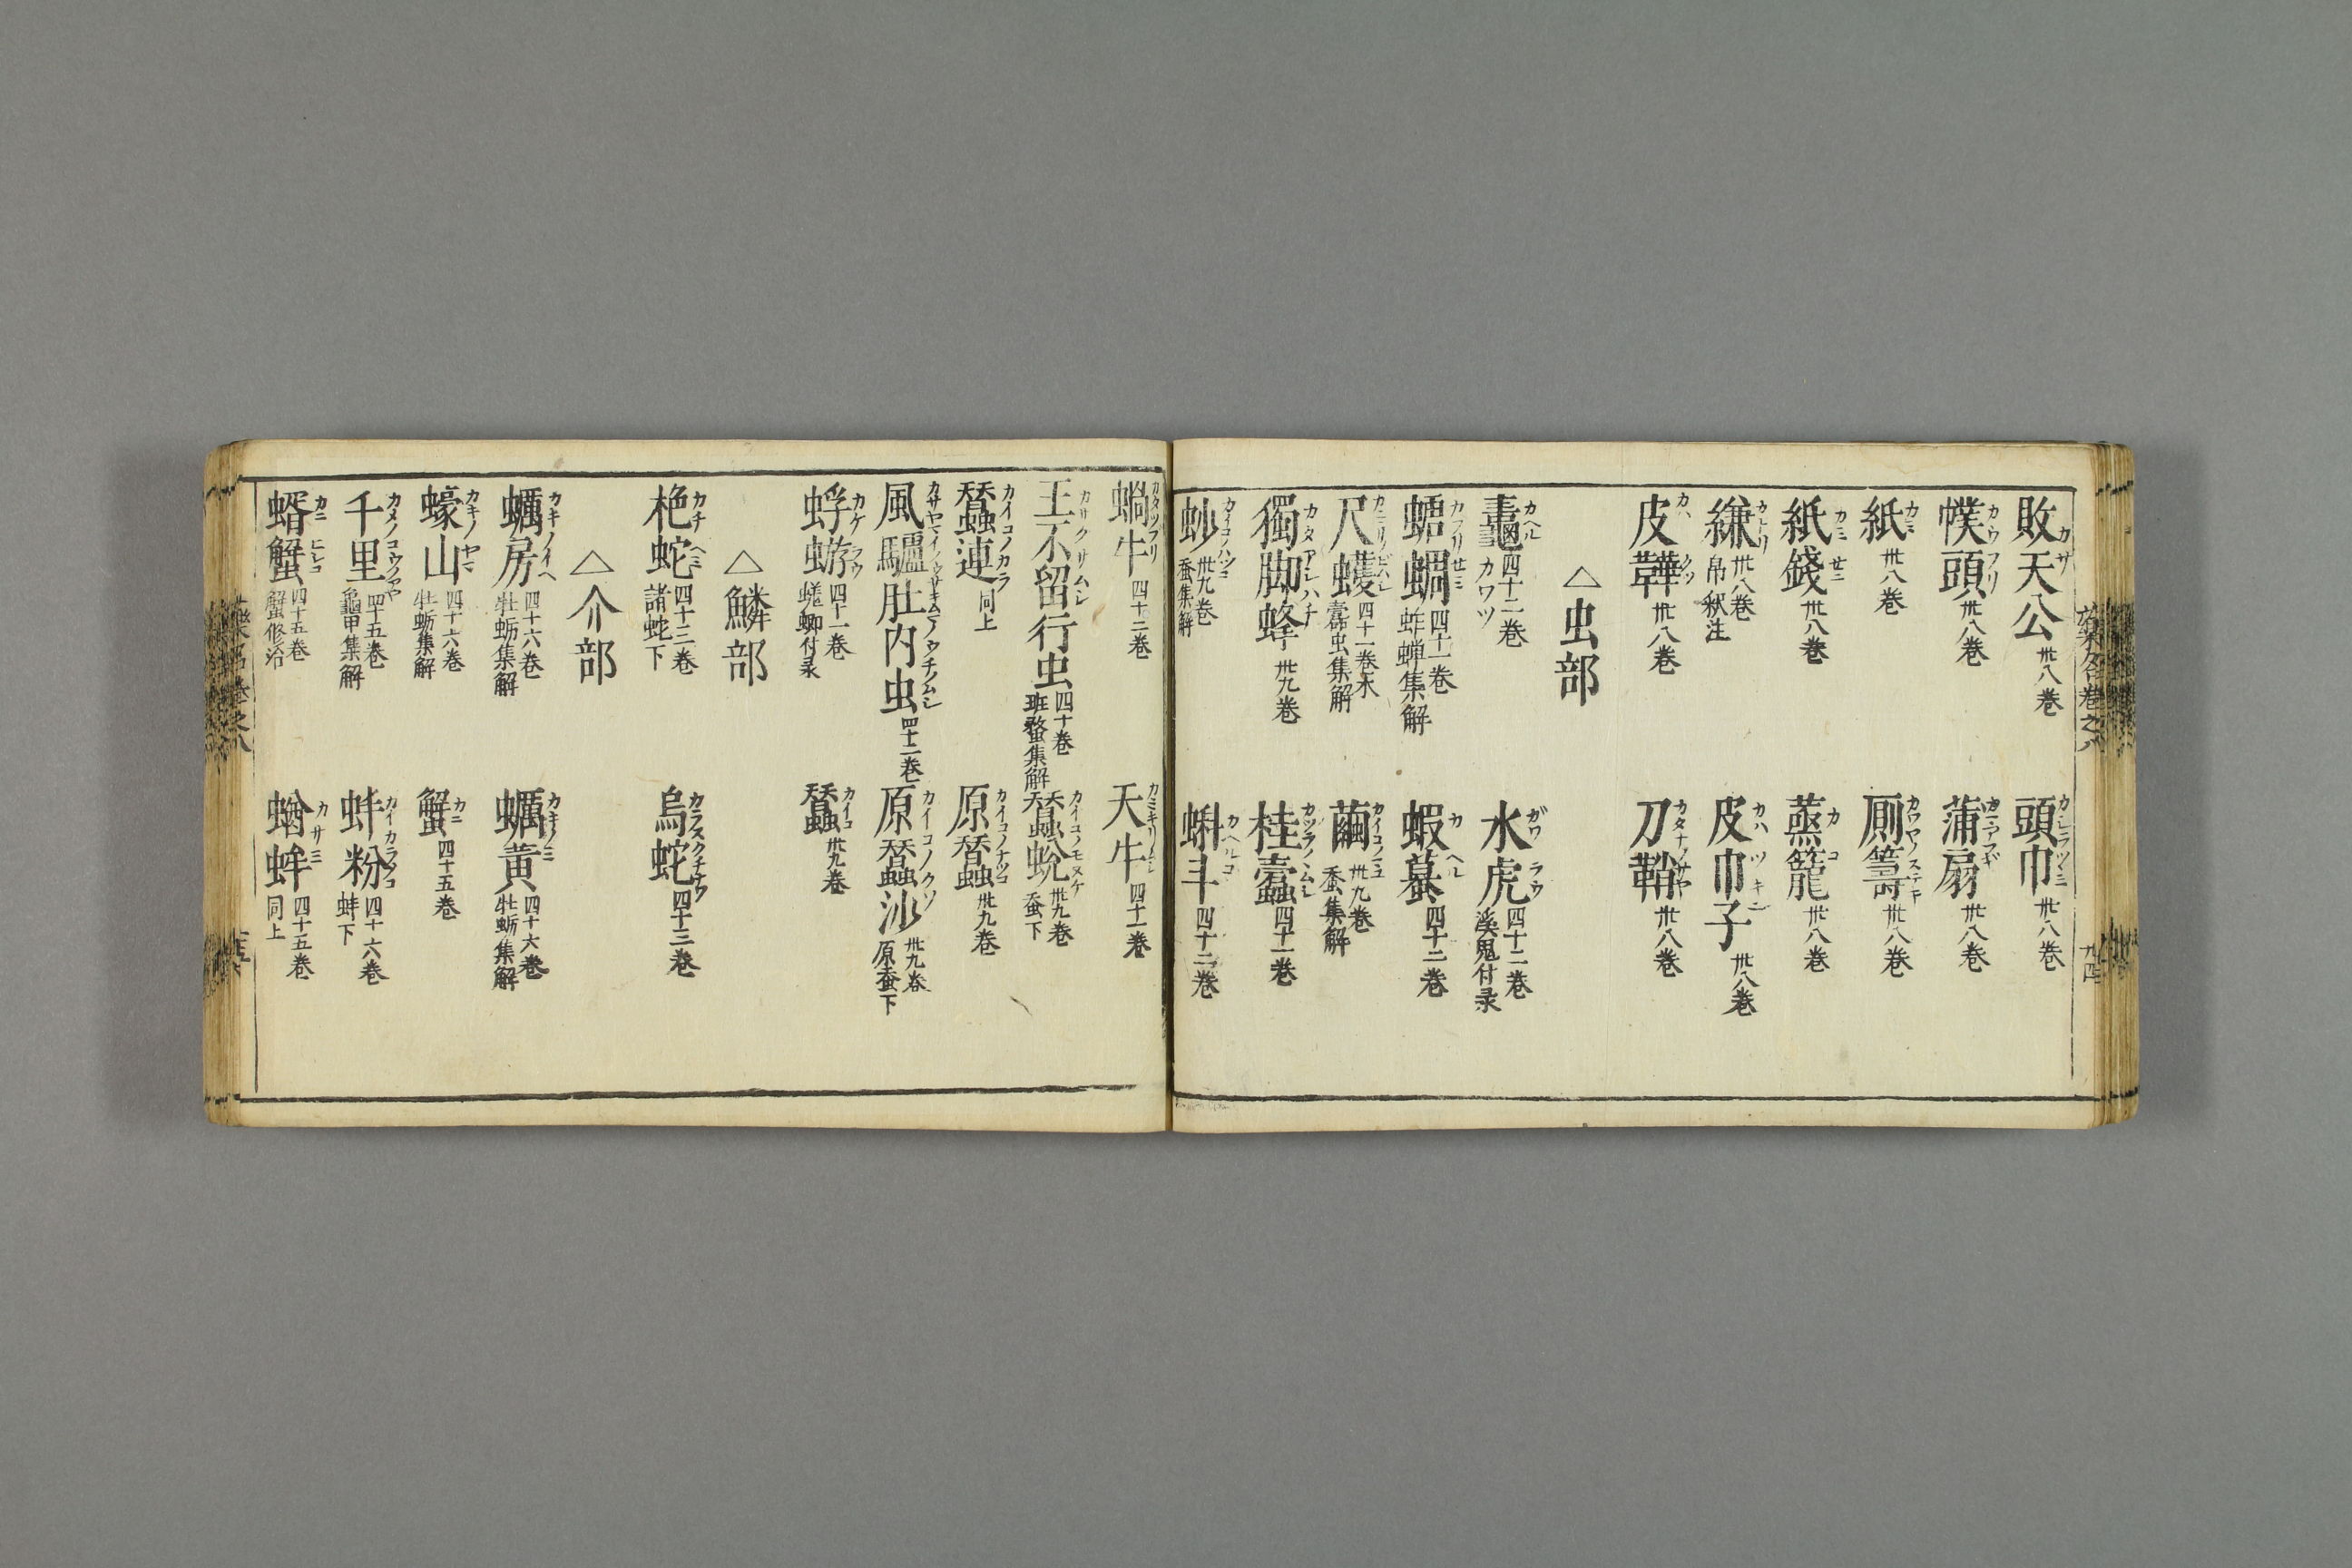 敗天公 カサ 卅八巻
頭巾 卅八巻
幞頭 カウフリ 卅八巻
蒲扇 卅八巻
紙 カミ 卅八巻
厠籌 卅八巻
紙錢 カミセニ 卅八巻
蒸籠 カコ 卅八巻
縑 カトリ 卅八巻 帛釈注
皮巾子 カハツキン 卅八巻
皮鞾 カハクツ 卅八巻
刀鞘 カタナノサヤ 卅八巻
△虫部
鼃 カヘル カワツ 四十二巻
水虎 ガワラウ 四十二巻 溪鬼付录
螗蜩 四十一巻 蚱蝉集解
蝦蟇 カヘル 四十二巻
尺蠖 四十一巻末 蠹虫集解
繭 カイコノマユ 卅九巻 蚕集解
獨脚蜂 カタアシハチ 卅九巻
桂蠹 カツラノムシ 四十一巻
𧉭 卅九巻 蚕集解
蝌斗 カヘルコ 四十二巻
蝸牛 カタツフリ 四十二巻
天牛 カミキリムシ 四十一巻
王不留行虫 カサクサムシ 四十巻 斑蝥集解
蠶蛻 カイコノモヌケ 卅九巻 蚕下
蠶連 カイコノカラ 同上
原蠶 カイコノナツコ 卅九巻
風驢肚内虫 四十二巻
原蠶沙 カイコノクソ 卅九巻 原蚕下
蜉蝣 カケラウ 四十一巻 蜣蜋付录
蠶 カイコ 卅九巻
△鱗部
梔蛇 カチヘミ 四十三巻 諸蛇下
烏蛇 カラスクチナワ 四十三巻
△介部
蠣房 カキノイヘ 四十六巻 牡蛎集解
蠣黄 カキノミ 四十六巻 牡蛎集解
蠔山 カキノヤマ 四十六巻 牡蛎集解
蟹 カニ 四十五巻
千里 四十五巻 龜甲集解
蚌粉 カイカラノコ 四十六巻 蚌下
蝑蟹 カニヒシコ 四十五巻 蟹修治
蝤蛑 カサミ 四十五巻 同上
藥名巻之八